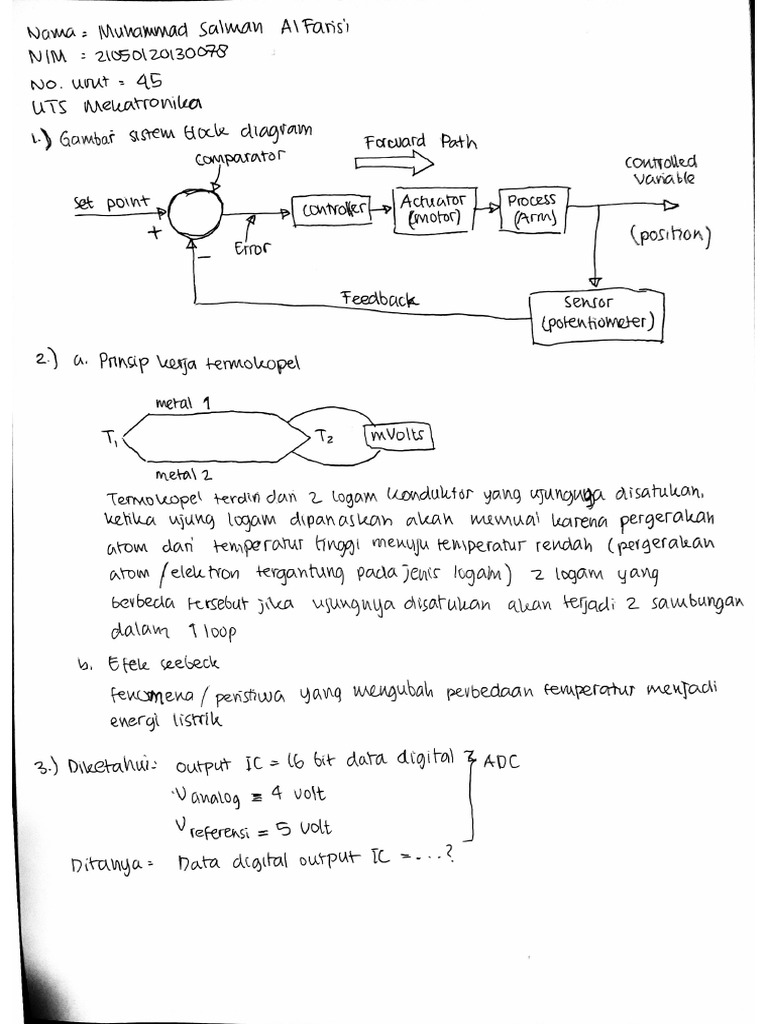 Nama = Muhammad Salman AlFarisi
NIM = 21050120130078
No. urut = 45
UTS Mekatronika
1.) Gambar sistem block diagram
Comparator
Forward Path
Controlled
Variable
Set point
+
-
Error
Controller
Actuator
(motor)
Process
(Arm)
(position)
Feedback
Sensor
(potentiometer)
2.) a. Prinsip kerja termokopel
metal 1
T1
T2
mVolts
metal 2
Termokopel terdiri dari 2 logam konduktor yang ujungnya disatukan.
ketika ujung logam dipanaskan akan memuai karena pergerakan
atom dari temperatur tinggi menuju temperatur rendah (pergerakan
atom / elektron tergantung pada jenis logam) 2 logam yang
berbeda tersebut jika ujungnya disatukan akan terjadi 2 sambungan
dalam 1 loop
b. Efek seebeck
fenomena / peristiwa yang mengubah perbedaan temperatur menjadi
energi listrik
3.) Diketahui = output IC = 16 bit data digital
ADC
V analog = 4 volt
V referensi = 5 volt
Ditanya = Data digital output IC = ...?